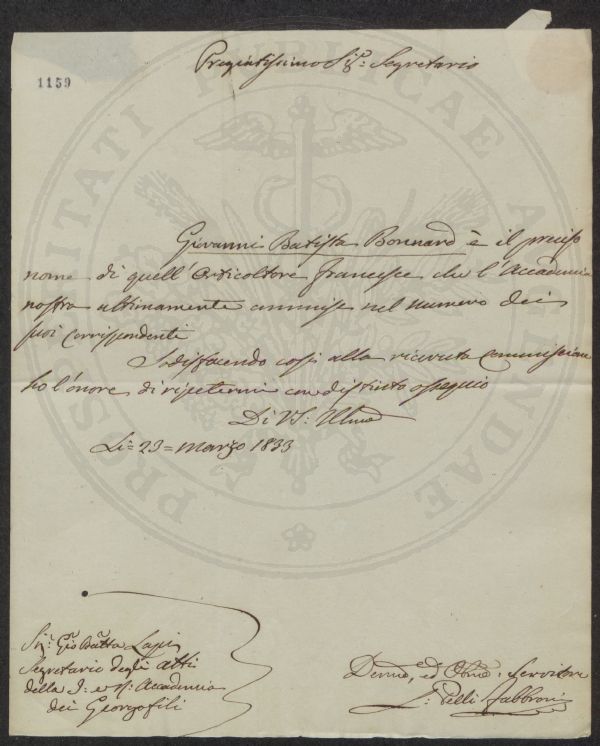 1159
Pregiatissimo Sig.r Segretario
Giovanni Batista Bonnard è il preciso
nome di quell'Orticoltore francese che l'Accademia
nostra ultimamente ammise nel numero dei
suoi Corrispondenti
Sodisfacendo così alla ricevuta Commissione
ho l'onore di ripetermi con distinto ossequio
Di VS: Illma
Li = 23 = Marzo 1833
Sig.r Gio Batta Lapi
Segretario degli Atti
della I. e R. Accademia
dei Georgofili
Devmo, ed Obmo: Servitore
Pelli Fabbroni
PROSPERITATI PUBLICAE AUGENDAE